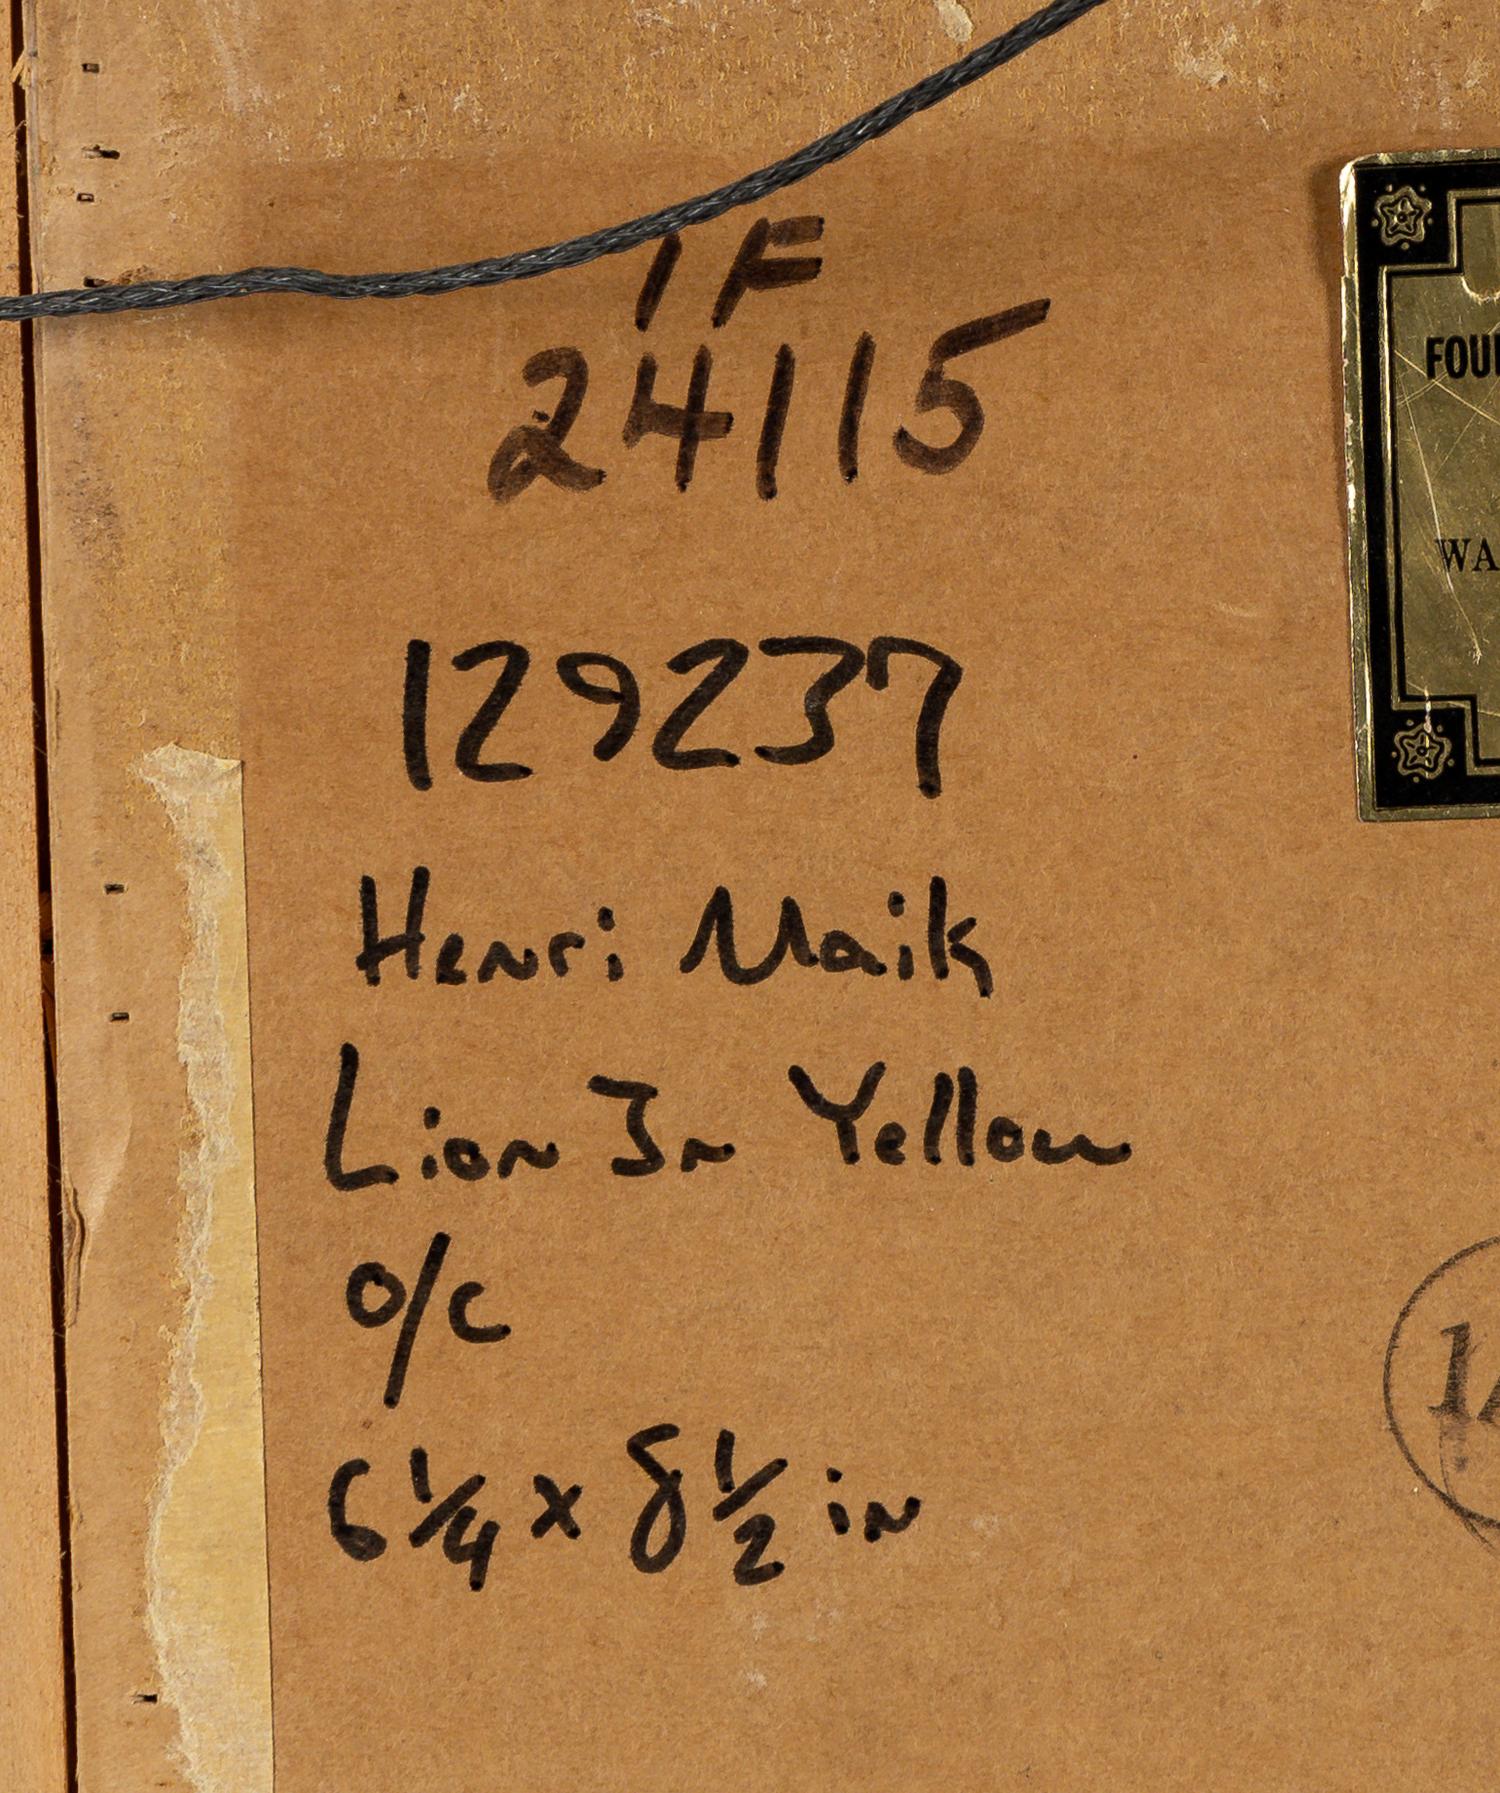 IF
24115
129237
Henri Maik
Lion In Yellow
o/c
6 1/4 x 8 1/2 in
FOU
WA